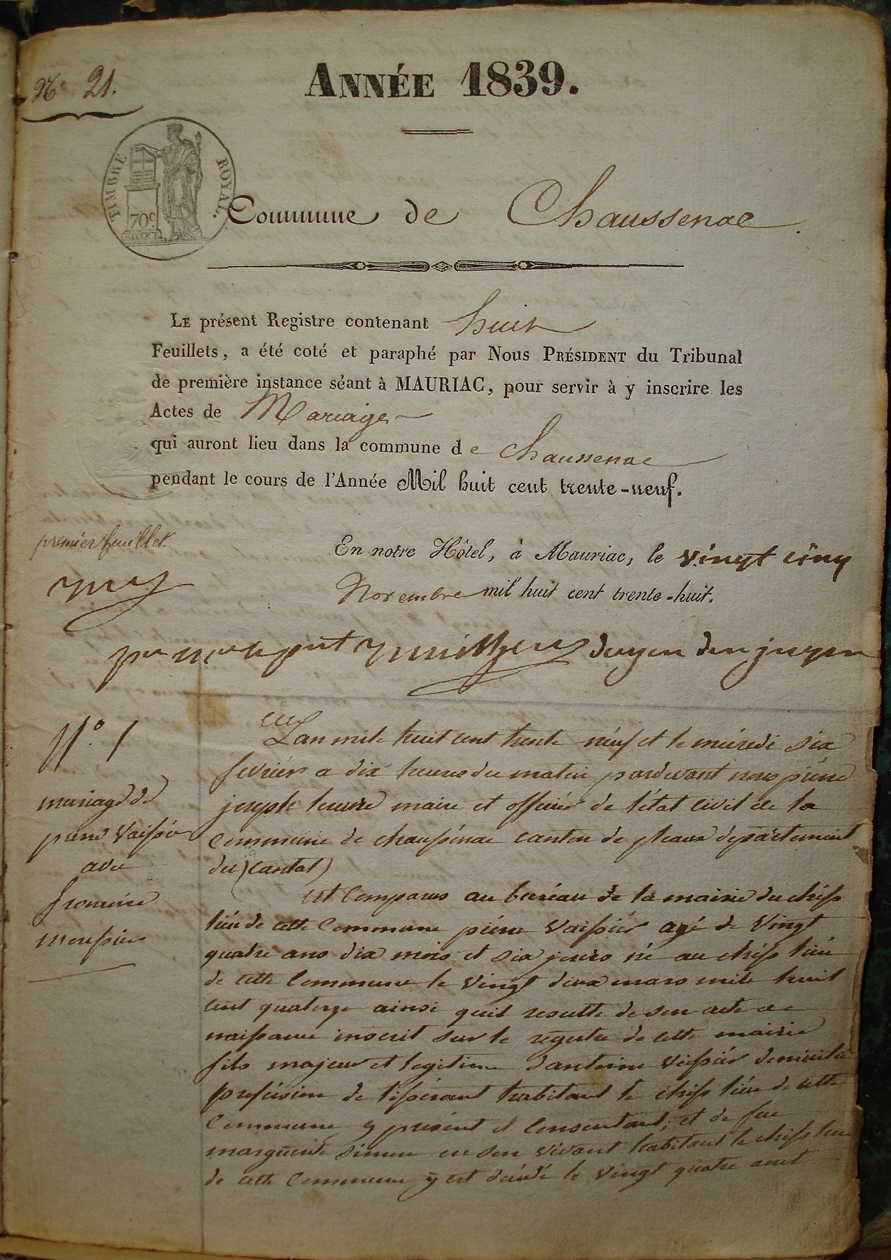 N° 21.
ANNÉE 1839.
TIMBRE ROYAL
70c
Commune de Chaussenac.
LE présent Registre contenant huit
Feuillets, a été coté et paraphé par Nous PRÉSIDENT du Tribunal
de première instance séant à MAURIAC, pour servir à y inscrire les
Actes de Mariage
qui auront lieu dans la commune de Chaussenac
pendant le cours de l'Année Mil huit cent trente-neuf.
premier feuillet
En notre Hôtel, à Mauriac, le vingt cinq
Novembre mil huit cent trente-huit.
doyen des juges
N° 1
mariage de
pierre Vaissier
avec
L'an mile huit cent trente neuf et le mercredi six
fevrier a dix heures du matin pardevant nous pierre
joseph maire et officier de l'état civil de la
Commune de chaussenac canton de pleaux departement
du (cantal)
est Comparus au bureau de la mairie du cheff
lieu de cette Commune pierre Vaissier agé de Vingt
quatre ans dix mois et six jours né au cheff lieu
de cette Commune le Vingt deux mars mile huit
cent quatorze ainsi quil resulte de son acte de
naissance inscrit sur le registre de cette mairie
fils majeur et legitime d'antoine Veissier
profession de tisserant habitant le cheff lieu de cette
Commune y présent et Consentant, et de feu
marguerite en son vivant habitant le cheff lieu
de cette Commune y est decédé le Vingt quatre aout